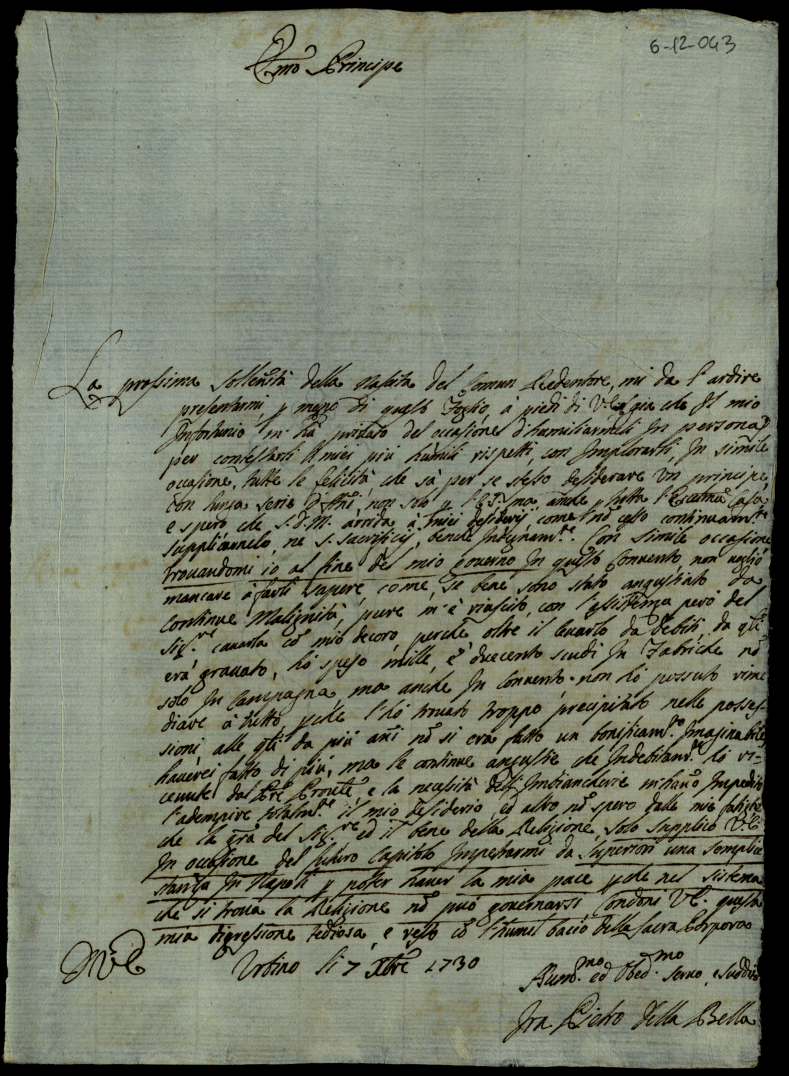 6-12-043
Em̃o Principe
La prossima sollenità della nascita del Comun Redentore, mi da l'ardire
presentarmi p mezo di questo foglio, à piedi di V.E. già che il mio
Infortunio m'hà privato del occasione d'humiliarmeli In persona
per contestarli i miei più humili rispetti, con Implorarli, In simile
occasione, tutte le felicità che sà per se stesso desiderare un principe
con lunga serie d'Anni, non solo p l'E.S. ma anche p tutta l'Eccma Casa
e spero che S.D.M. arrida à miei desiderij, come nõ cesso continuamte
supplicarnelo, ne S. sacrificij, benche Indegnamte. Con simile occasione
trovandomi io al fine del mio governo In questo Convento non voglio
mancare à farli sapere, come, se bene sono stato angustiato da
continue Malignità, pure m'è riuscito, con l'assistenza però del
Sigre cavarla cõ mio decoro, perche oltre il levarlo da debiti, da qli
era gravato, hò speso mille, e duecento scudi In Fabriche nõ
solo In Campagna, ma anche In Convento. non hò possuto rime
diare à tutto, pche l'hò trovato troppo precipitato nelle posses-
sioni, alle qli da più anni nõ si era fatto un bonificamto Imaginabile
haverei fatto di più, ma le continue angustie che Indebitamte hò ri-
cevute dal Pre Provle, e la necessità dell'Imbiancherie m'hano Impedito
l'adempire totalmte il mio desiderio ed altro nõ spero dalle mie fatighe
che la gra del Sigre ed il bene della Religione, solo supplico V.E.
In occasione del futuro Capitolo Impetrarmi da Superiori una semplice
stanza In Napoli p poter haver la mia pace pche nel sistema
che si trova la Religione nõ può governarsi Condoni V.E. questa
mia digressione tediosa, e resto cõ l'humil bacio della sacra Porpora
D V.E.
Urbino li 7 Xbre 1730
Hummo ed Obedmo servo, e suddito
Fra Pietro della Bella